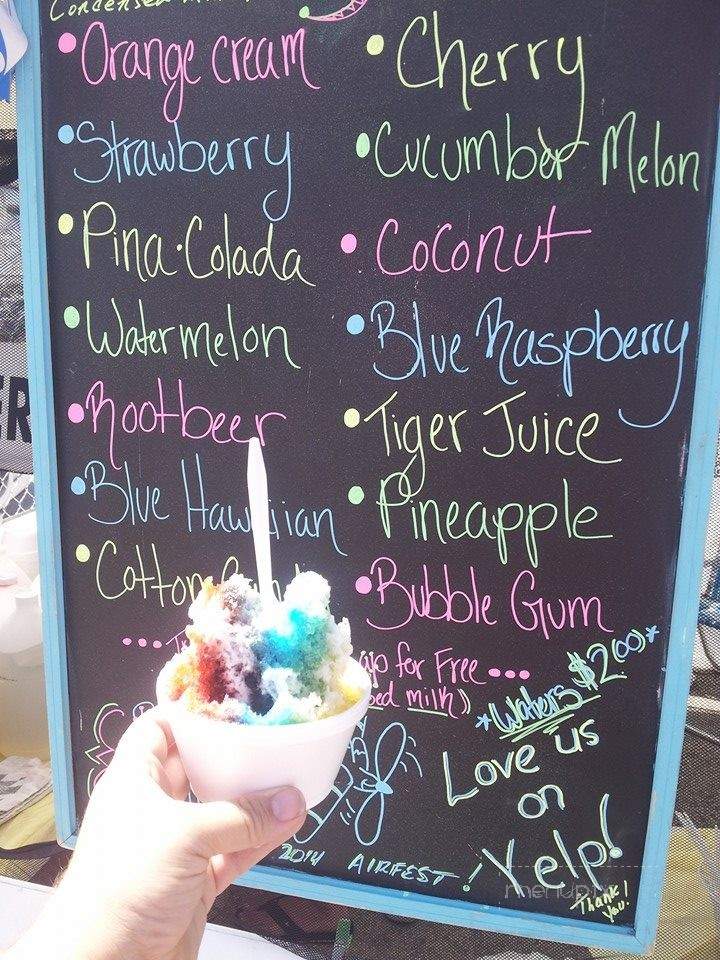 Condensed
• Orange cream
• Strawberry
• Pina • Colada
• Watermelon
• Rootbeer
• Blue Hawaiian
• Cotton
• Cherry
• Cucumber Melon
• Coconut
• Blue Raspberry
• Tiger Juice
• Pineapple
• Bubble Gum
for Free •••
milk))
*Waters $2(00)*
Love us
on
Yelp!
Thank
You!
2014 AIRFEST!
menupix